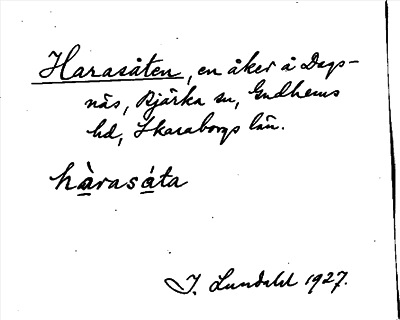 Harasåten, en åker å Dags-
näs, Bjärka sn, Gudhems
hd, Skaraborgs län.
hàrasáta
I. Lundahl 1927.